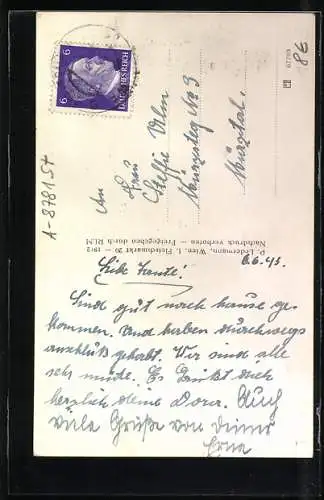 6 6
DEUTSCHES REICH
An
Frau
Steffie Ulm
Mürzsteg No 3
Mürztal.
07799
86
A-878154
P. Ledermann, Wien, I., Fleischmarkt 20 — 1942
Nachdruck verboten — Freigegeben durch RLM
6.6.43.
Liebe Tante!
Sind gut nach hause ge-
kommen. Und haben durchwegs
anschluß gehabt. Wir sind alle
sehr müde. Es Grüßt dich
herzlich deine Dorer. Auch
viele Grüße von deiner
Erna